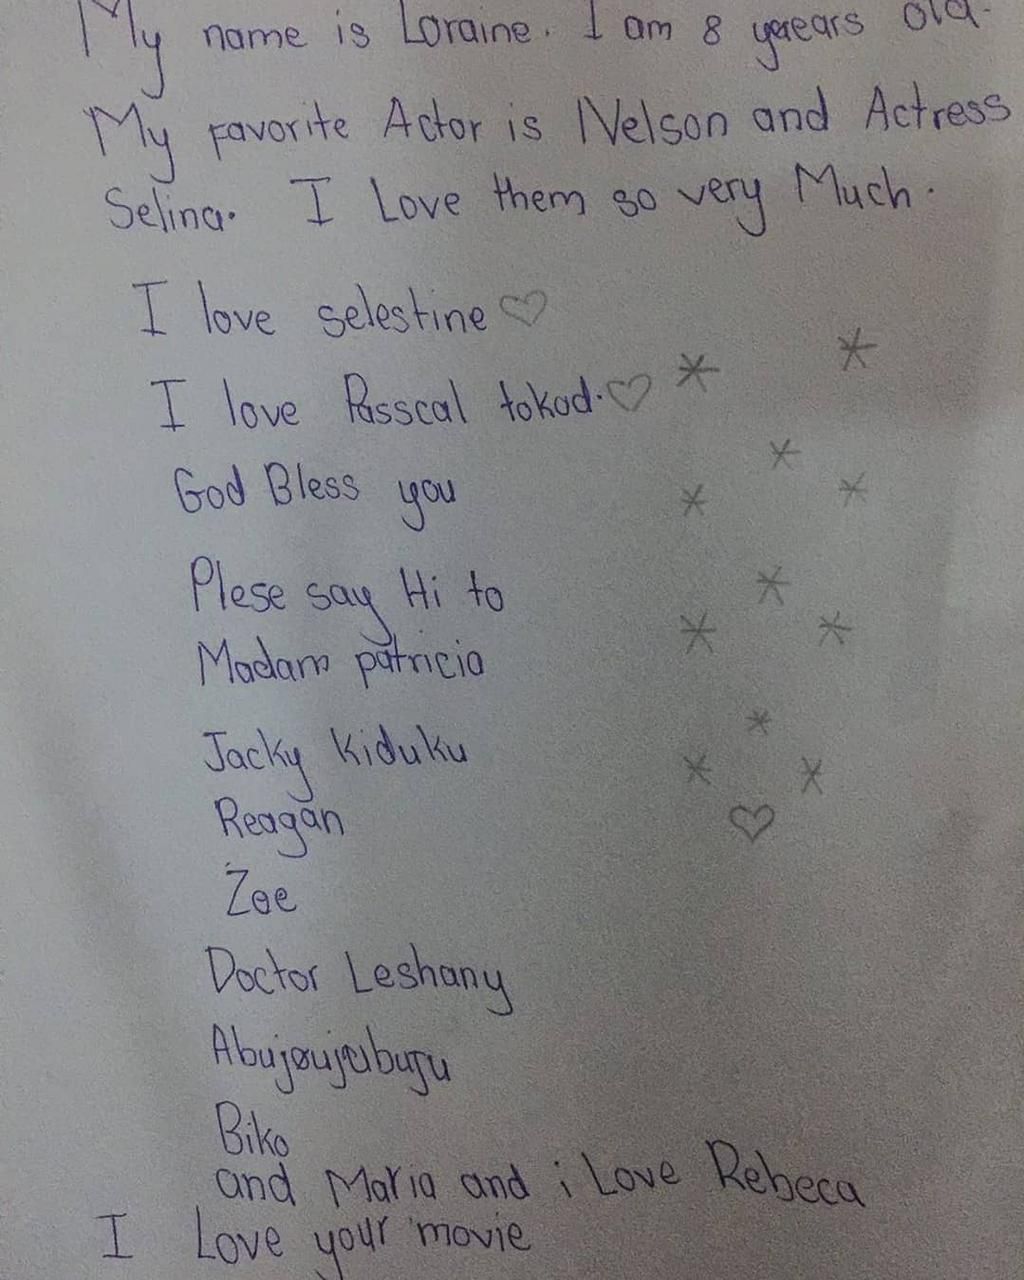 My name is Loraine. I am 8 yearears old.
My favorite Actor is Nelson and Actress
Selina. I Love them so very Much.
I love selestine ♡
I love Passcal tokod. ♡
God Bless you
Plese say Hi to
Madam patricia
Jacky Kiduku
Reagan
Zoe
Doctor Leshany
Biko
and Maria and i Love Rebeca
I Love your movie